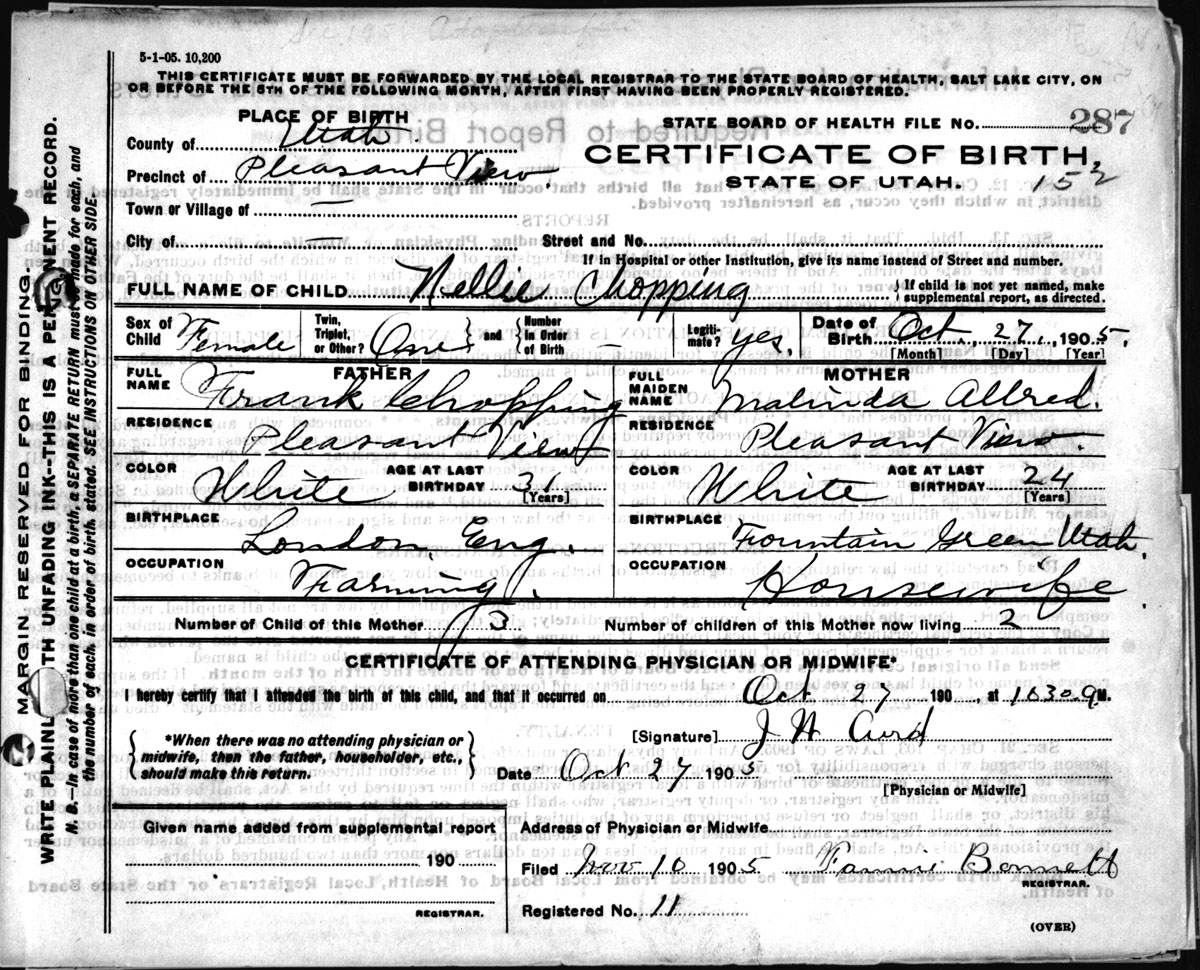 5-1-05. 10,200
THIS CERTIFICATE MUST BE FORWARDED BY THE LOCAL REGISTRAR TO THE STATE BOARD OF HEALTH, SALT LAKE CITY, ON
OR BEFORE THE 5TH OF THE FOLLOWING MONTH, AFTER FIRST HAVING BEEN PROPERLY REGISTERED.
PLACE OF BIRTH
STATE BOARD OF HEALTH FILE No. 287
County of Utah.
CERTIFICATE OF BIRTH,
Precinct of Pleasant View.
STATE OF UTAH. 152
Town or Village of —
City of — Street and No.
If in Hospital or other Institution, give its name instead of Street and number.
FULL NAME OF CHILD Nellie Chopping { If child is not yet named, make supplemental report, as directed.
Sex of Child Female Twin, Triplet, or Other? One } and { Number in Order of Birth – Legitimate? yes. Date of Birth Oct., 27, 1905.
[Month] [Day] [Year]
FATHER MOTHER
FULL NAME Frank Chopping FULL MAIDEN NAME Malinda Allred.
RESIDENCE Pleasant View RESIDENCE Pleasant View.
COLOR White AGE AT LAST BIRTHDAY 31 [Years] COLOR White AGE AT LAST BIRTHDAY 24 [Years]
BIRTHPLACE London, Eng. BIRTHPLACE Fountain Green Utah.
OCCUPATION Farming. OCCUPATION Housewife.
Number of Child of this Mother 3. Number of children of this Mother now living 2
CERTIFICATE OF ATTENDING PHYSICIAN OR MIDWIFE*
I hereby certify that I attended the birth of this child, and that it occurred on Oct. 27 190 , at M.
[Signature] J W
{ *When there was no attending physician or midwife, then the father, householder, etc., should make this return. }
Date Oct 27 1905
[Physician or Midwife]
Given name added from supplemental report
Address of Physician or Midwife
190
Filed Nov 10 1905 Bonnett
REGISTRAR.
REGISTRAR.
Registered No. 11
(OVER)
MARGIN RESERVED FOR BINDING.
WRITE PLAINLY WITH UNFADING INK--THIS IS A PERMANENT RECORD.
N. B.—In case of more than one child at a birth, a SEPARATE RETURN must be made for each, and
the number of each, in order of birth, stated. SEE INSTRUCTIONS ON OTHER SIDE.